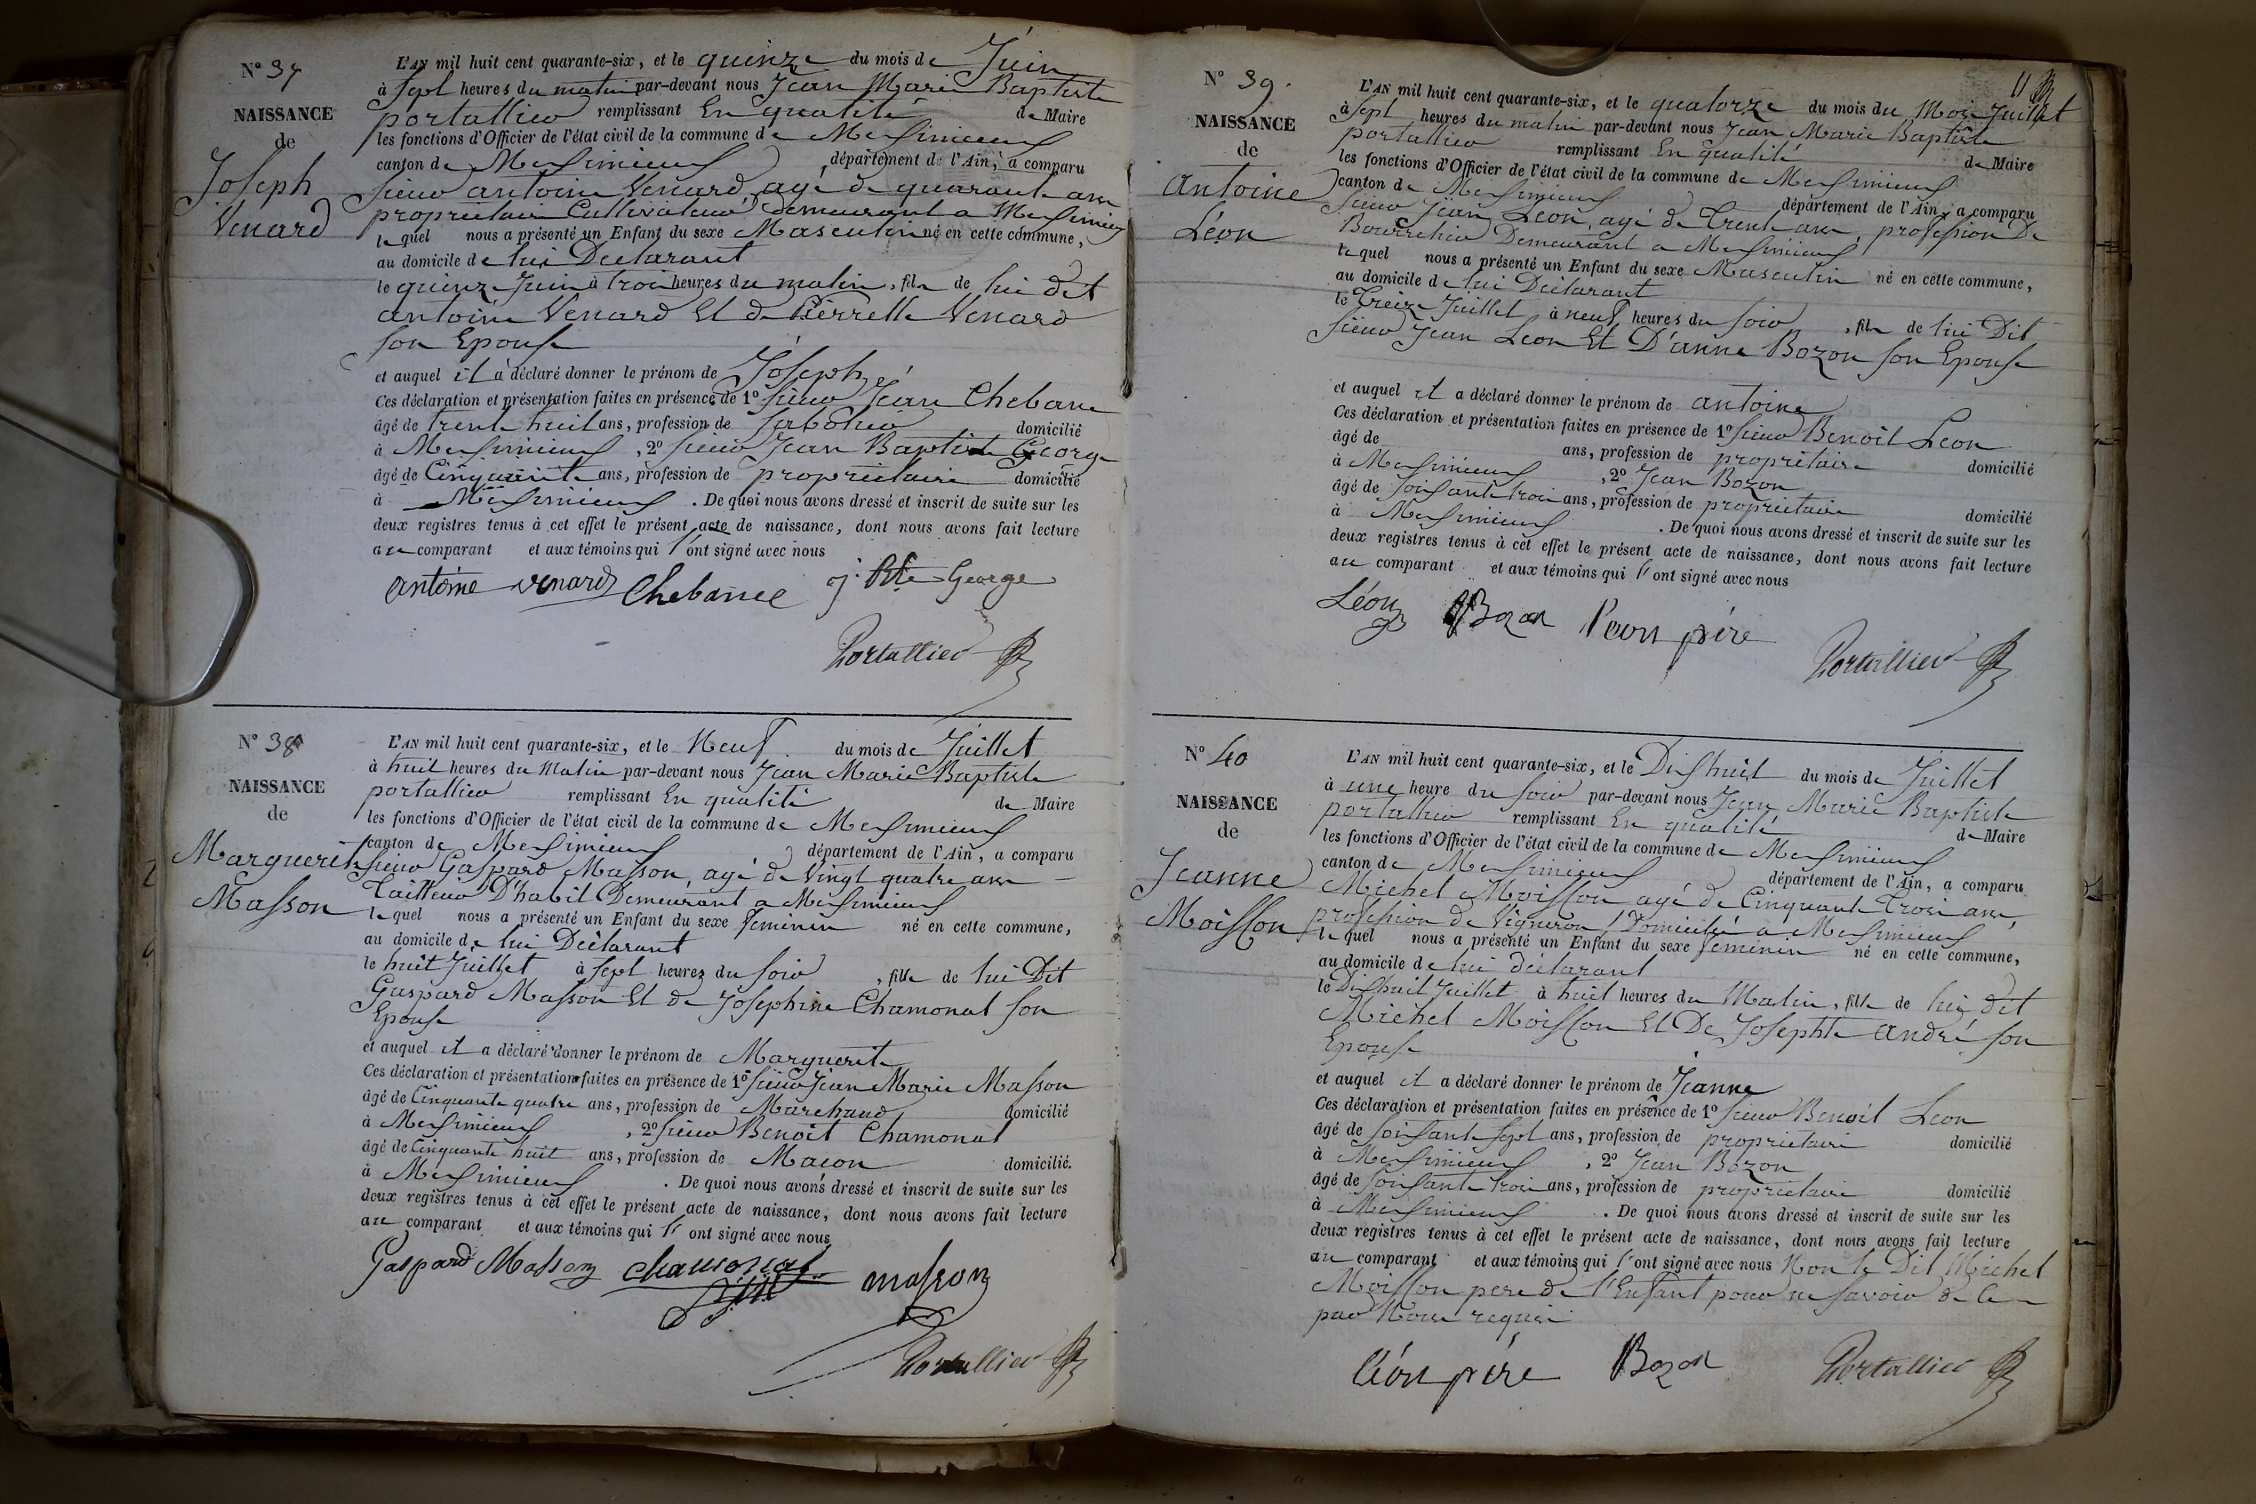 N° 37
NAISSANCE
de
Joseph
Venard
L'AN mil huit cent quarante-six, et le quinze du mois de Juin
à Sept heures du matin par-devant nous Jean Marie Baptiste
portallier remplissant En qualité de Maire
les fonctions d'Officier de l'état civil de la commune de Messimieux
canton de Messimieux département de l'Ain, a comparu
Sieur antoine Venard agé de quarante ans
proprietaire Cultivateur demeurant a Messimieux
lequel nous a présenté un Enfant du sexe Masculin né en cette commune,
au domicile de lui Declarant
le quinze Juin à trois heures du matin, fils de lui dit
antoine Venard Et de Pierrette Venard
son Epouse
et auquel il a déclaré donner le prénom de Joseph
Ces déclaration et présentation faites en présence de 1° Sieur Jean Chebance
âgé de trente huit ans, profession de domicilié
à Messimieux, 2° Sieur Jean Baptiste George
âgé de Cinquante ans, profession de proprietaire domicilié
à Messimieux. De quoi nous avons dressé et inscrit de suite sur les
deux registres tenus à cet effet le présent acte de naissance, dont nous avons fait lecture
au comparant et aux témoins qui l'ont signé avec nous
antoine venard Chebance j. Bte George
Portallier
N° 38
NAISSANCE
de
Marguerite
Masson
L'AN mil huit cent quarante-six, et le Neuf du mois de Juillet
à huit heures du Matin par-devant nous Jean Marie Baptiste
portallier remplissant En qualité de Maire
les fonctions d'Officier de l'état civil de la commune de Messimieux
canton de Messimieux département de l'Ain, a comparu
Sieur Gaspard Masson, agé de Vingt quatre ans
Tailleur D'habit Demeurant a Messimieux
lequel nous a présenté un Enfant du sexe feminin né en cette commune,
au domicile de lui Déclarant
le huit Juillet à sept heures du soir, fille de lui Dit
Gaspard Masson Et de Josephine Chamonat son
Epouse
et auquel il a déclaré donner le prénom de Marguerite
Ces déclaration et présentation faites en présence de 1° Sieur Jean Marie Masson
âgé de Cinquante quatre ans, profession de Marchand domicilié
à Messimieux, 2° Sieur Benoit Chamonat
âgé de Cinquante huit ans, profession de Macon domicilié.
à Messimieux. De quoi nous avons dressé et inscrit de suite sur les
deux registres tenus à cet effet le présent acte de naissance, dont nous avons fait lecture
au comparant et aux témoins qui l'ont signé avec nous
Gaspard Masson chamonat masson
Portallier
11
N° 39.
NAISSANCE
de
Antoine
Léon
L'AN mil huit cent quarante-six, et le quatorze du mois du Mois Juillet
à Sept heures du matin par-devant nous Jean Marie Baptiste
portallier remplissant En qualité de Maire
les fonctions d'Officier de l'état civil de la commune de Messimieux
canton de Messimieux département de l'Ain, a comparu
Sieur Jean Leon, agé de trente ans, profession De
Bourrelier Demeurant a Messimieux
lequel nous a présenté un Enfant du sexe Masculin né en cette commune,
au domicile de lui Déclarant
le Treize Juillet à neuf heures du soir, fils de lui Dit
Sieur Jean Leon Et D'anne Bozon son Epouse
et auquel il a déclaré donner le prénom de antoine
Ces déclaration et présentation faites en présence de 1° Sieur Benoit Leon
âgé de ans, profession de propriétaire domicilié
à Messimieux, 2° Jean Bozon
âgé de soixante trois ans, profession de proprietaire domicilié
à Messimieux. De quoi nous avons dressé et inscrit de suite sur les
deux registres tenus à cet effet le présent acte de naissance, dont nous avons fait lecture
au comparant et aux témoins qui l'ont signé avec nous
Léon Bozon Léon père
Portallier
N° 40
NAISSANCE
de
Jeanne
Moisson
L'AN mil huit cent quarante-six, et le Dishuit du mois de Juillet
à une heure du soir par-devant nous Jean Marie Baptiste
portallier remplissant En qualité de Maire
les fonctions d'Officier de l'état civil de la commune de Messimieux
canton de Messimieux département de l'Ain, a comparu
Michel Moisson agé de Cinquante trois ans,
profession de Vigneron, Domicilié a Messimieux
lequel nous a présenté un Enfant du sexe feminin né en cette commune,
au domicile de lui déclarant
le Dishuit Juillet à huit heures du Matin, fille de lui dit
Michel Moisson Et De Josephte andré son
Epouse
et auquel il a déclaré donner le prénom de Jeanne
Ces déclaration et présentation faites en présence de 1° Sieur Benoit Leon
âgé de soixante sept ans, profession de proprietaire domicilié
à Messimieux, 2° Jean Bozon
âgé de soixante trois ans, profession de proprietaire domicilié
à Messimieux. De quoi nous avons dressé et inscrit de suite sur les
deux registres tenus à cet effet le présent acte de naissance, dont nous avons fait lecture
au comparant et aux témoins qui l'ont signé avec nous Non le Dit Michel
Moisson pere de l'Enfant pour ne savoir de ce
par Nous requis
Léon père Bozon Portallier